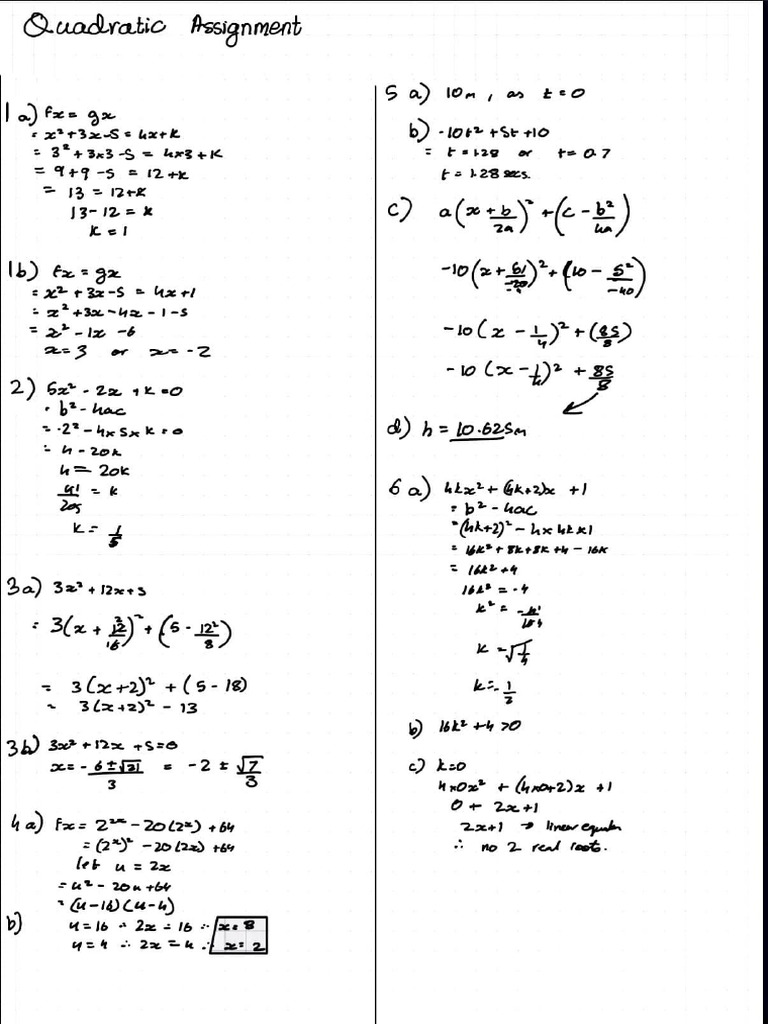 Quadratic Assignment
1a) fx = gx
= x² + 3x - 5 = 4x + k
= 3² + 3×3 - 5 = 4×3 + k
= 9 + 9 - 5 = 12 + k
= 13 = 12 + k
13 - 12 = k
k = 1
1b) fx = gx
= x² + 3x - 5 = 4x + 1
= x² + 3x - 4x - 1 - 5
= x² - 1x - 6
x = 3 or x = -2
2) 5x² - 2x + k = 0
= b² - 4ac
= -2² - 4×5×k = 0
= 4 - 20k
4 = 20k
4¹/20₅ = k
k = 1/5
3a) 3x² + 12x + 5
= 3(x + 12/6)² + (5 - 12²/8)
= 3(x+2)² + (5 - 18)
= 3(x+2)² - 13
3b) 3x² + 12x + 5 = 0
x = -6 ± √21/3 = -2 ± √7/3
4a) fx = 2²ˣ - 20(2ˣ) + 64
= (2ˣ)² - 20(2x) + 64
let u = 2x
= u² - 20u + 64
= (u - 16)(u - 4)
b) u = 16 ∴ 2x = 16 ∴ x = 8
u = 4 ∴ 2x = 4 ∴ x = 2
5 a) 10m, as t = 0
b) -10t² + 5t + 10
= t = 1.28 or t = 0.7
t = 1.28 secs.
c) a(x + b/2a)² + (c - b²/4a)
-10(x + 5¹/-20₄)² + (10 - 5²/-40)
-10(x - 1/4)² + (85/8)
-10(x - 1/4)² + 85/8
d) h = 10.625m
6 a) 4kx² + (4k+2)x + 1
= b² - 4ac
= (4k+2)² - 4×4k×1
= 16k² + 8k + 8k + 4 - 16k
= 16k² + 4
16k² = -4
k² = -4¹/16 4
k = √1/4
k = -1/2
b) 16k² + 4 > 0
c) k = 0
4×0x² + (4×0+2)x + 1
0 + 2x + 1
2x + 1 → linear equation
∴ no 2 real roots.